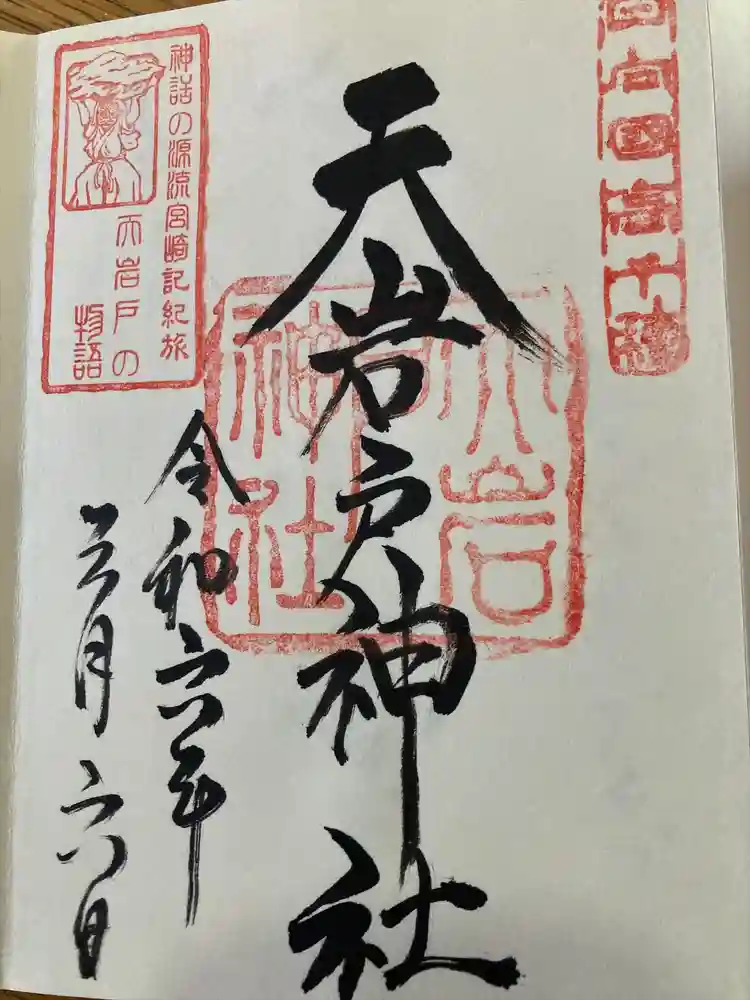 日向國高千穂
天岩戸神社
天岩戸
神社
神話の源流宮崎記紀旅
天岩戸の
物語
令和六年
三月六日